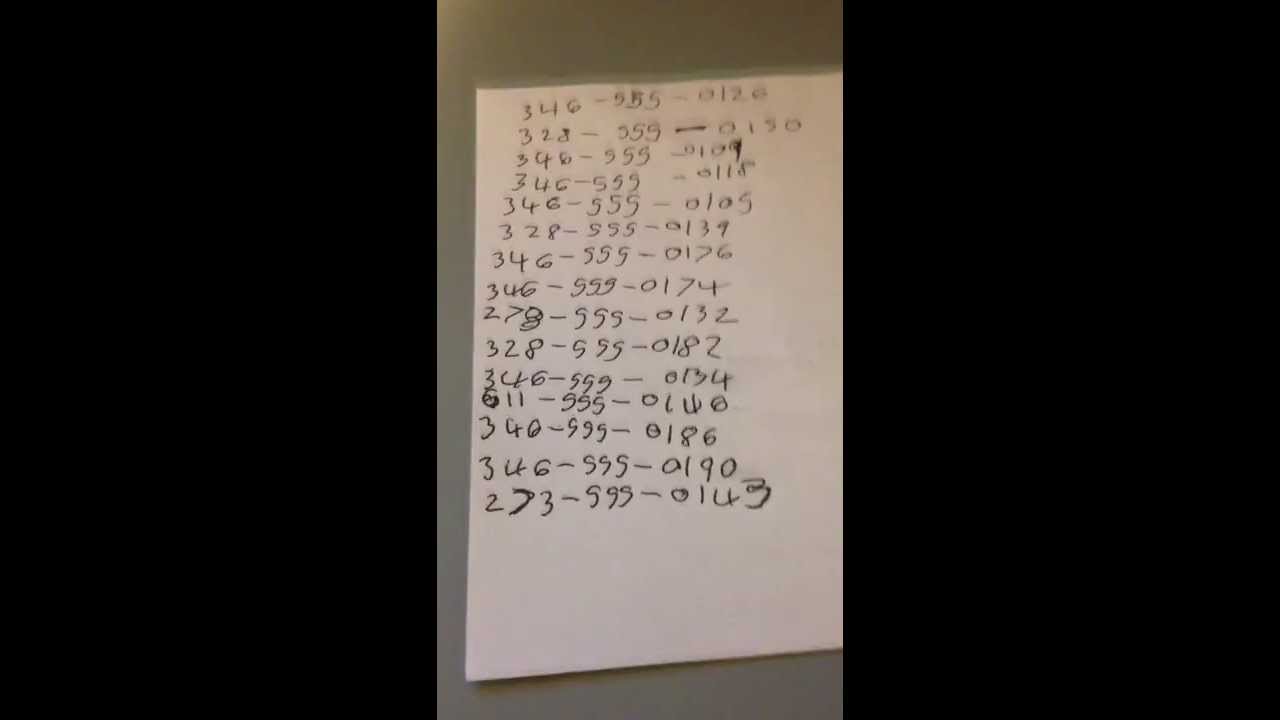 346-555-0126
328-555-0150
346-555-0109
346-555-0118
346-555-0105
328-555-0139
346-555-0176
346-555-0174
278-555-0132
328-555-0182
346-555-0134
611-555-0146
346-555-0186
346-555-0190
273-555-0143